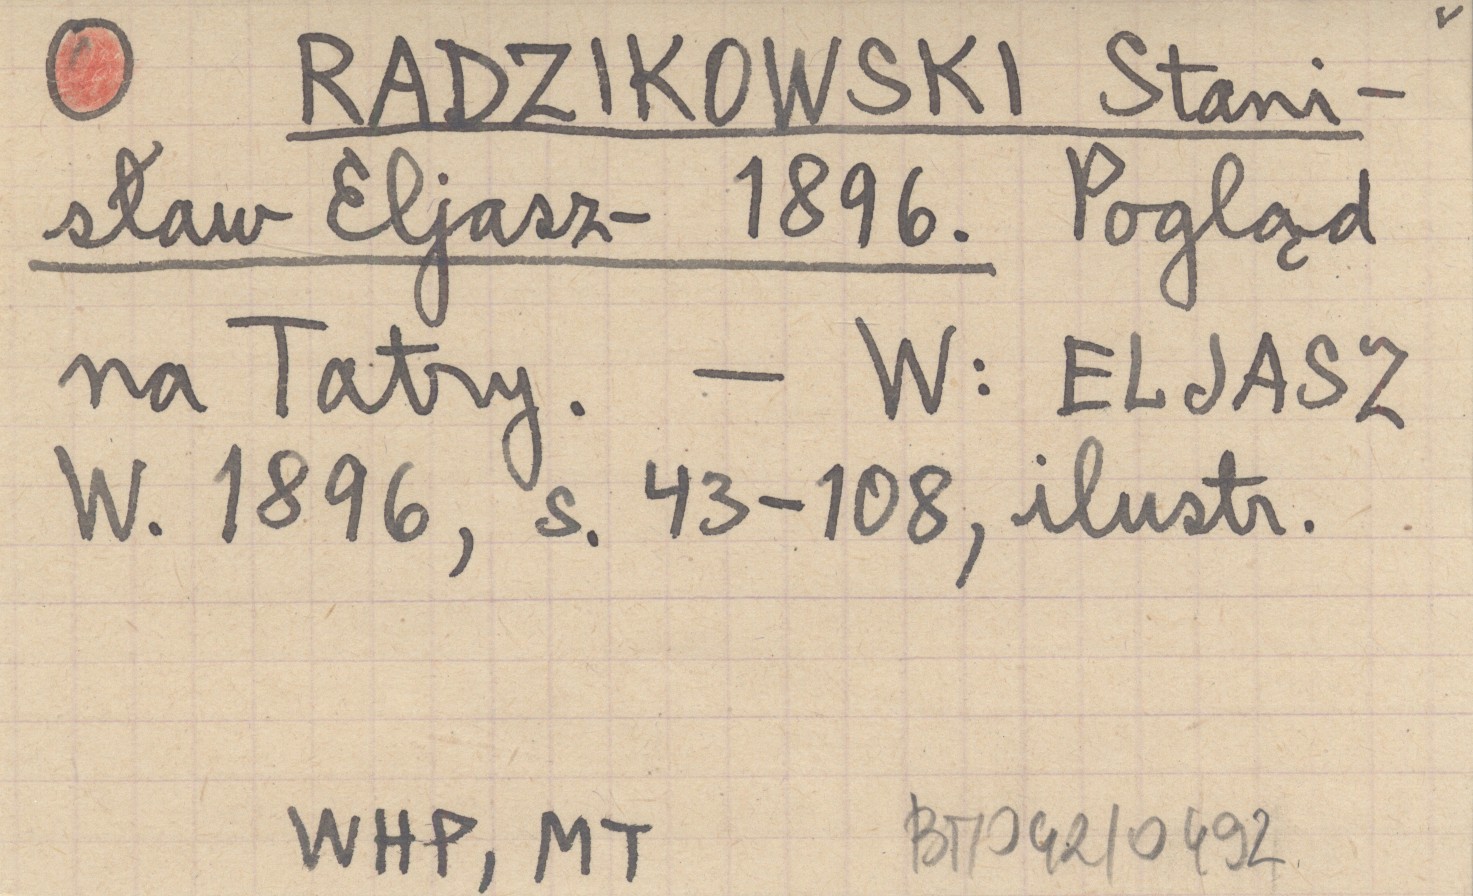 RADZIKOWSKI Stani-
sław Eljasz- 1896. Pogląd
na Tatry. — W: ELJASZ
W. 1896, s. 43-108, ilustr.
WHP, MT
BT/042/0492